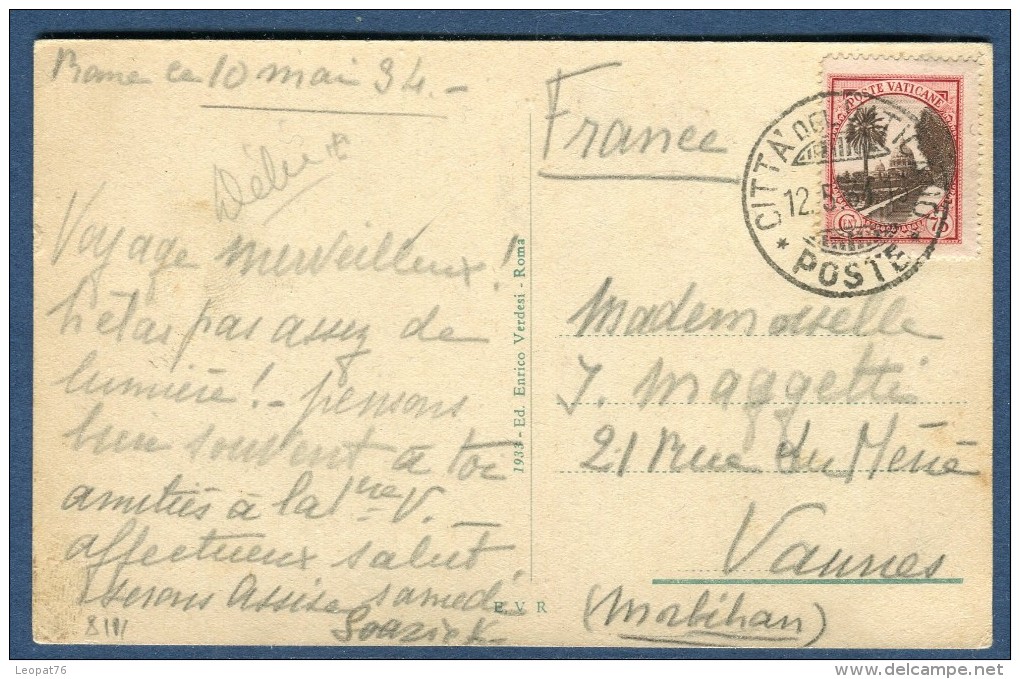 Rome ce 10 mai 34.-
Voyage merveilleux!
hélas pas assez de
lumière! - pensons
bien souvent à toi
amitiés à la 1re V.
affectueux salut.
serons Assise samedi
8///
1933 - Ed. Enrico Verdesi - Roma
E. V. R
France
POSTE VATICANE
CENT 75
CITTA' DEL VATICANO
12.5.34
* POSTE *
Mademoiselle
Y. Maggetti
21 Rue du Méné
Vannes
(Morbihan)
Leopat76
delcampe.net